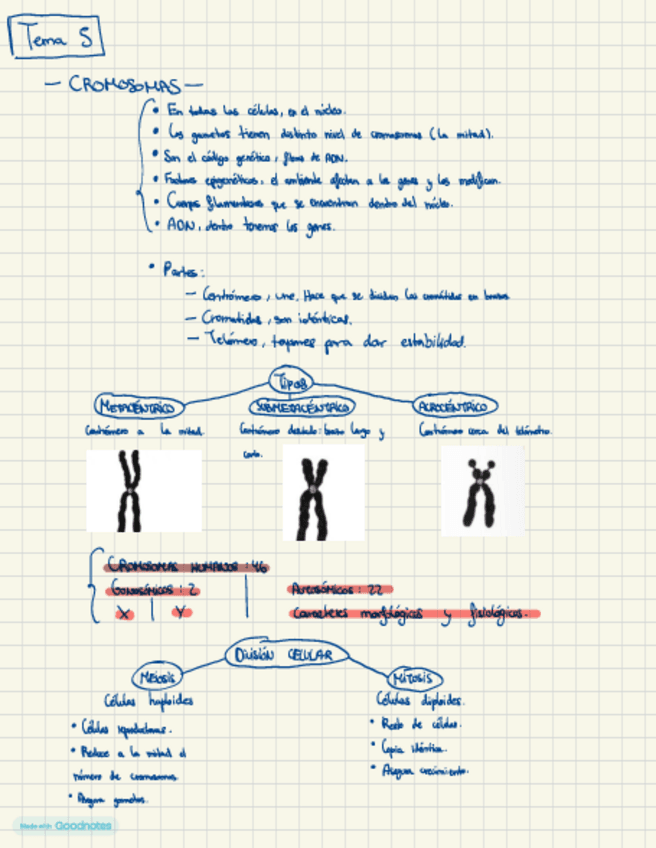 Tema 5
— CROMOSOMAS —
• En todas las células, en el núcleo.
• Los gametos tienen distinto nivel de cromosomas (la mitad).
• Son el código genético, fibras de ADN.
• Factores epigenéticos, el ambiente afectan a los genes y los modifican.
• Cuerpos filamentosos que se encuentran dentro del núcleo.
• ADN, dentro tenemos los genes.
• Partes:
— Centrómero, une. Hace que se dividan las cromátidas en brazos
— Cromatidas, son idénticas.
— Telómero, tapones para dar estabilidad.
Tipos
METACÉNTRICO SUBMETACÉNTRICO ACROCÉNTRICO
Centrómero a la mitad. Centrómero desviado: brazo largo y Centrómero cerca del telómero.
corto.
CROMOSOMAS HUMANOS: 46
GONOSÓMICOS: 2 AUTOSÓMICOS: 22
X | Y Caracteres morfológicos y fisiológicos.
DIVISIÓN CELULAR
MEIOSIS MITOSIS
Células haploides Células diploides.
• Células reproductoras. • Resto de células.
• Reduce a la mitad el • Copia idéntica.
número de cromosomas • Asegura crecimiento.
• gametos.
Made with Goodnotes